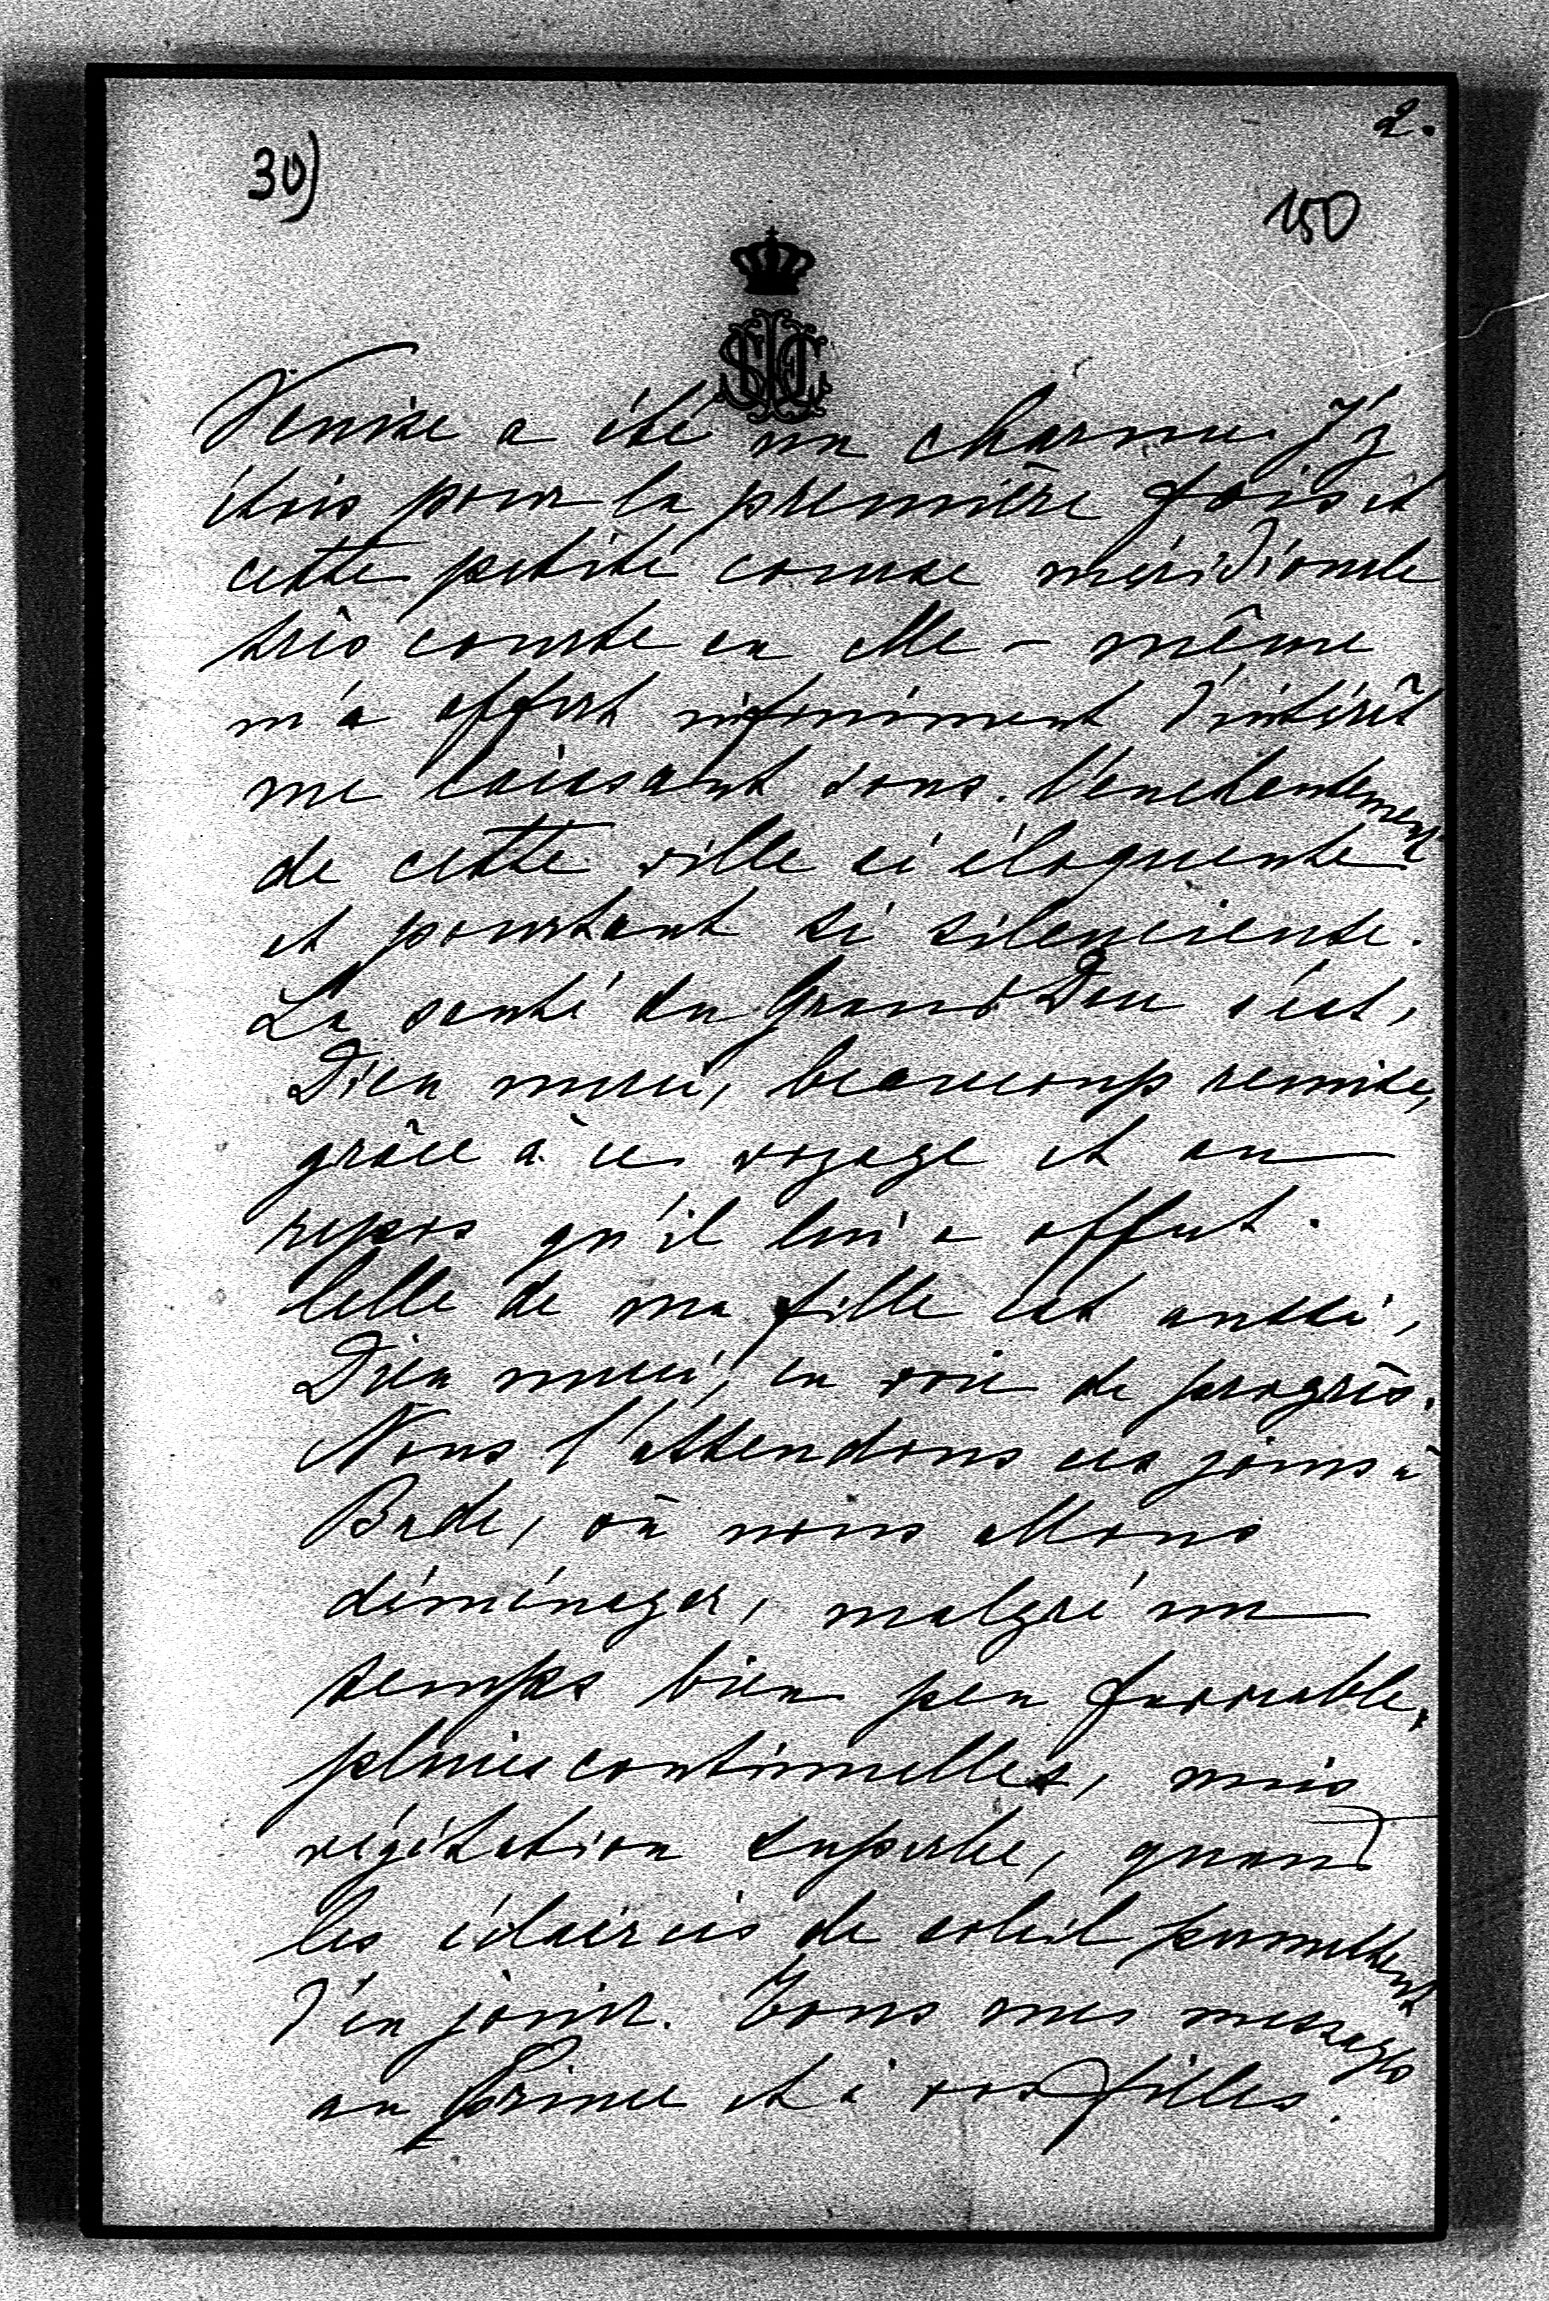 2.
30)
150
Venise a été un charme. J'y
étais pour la première fois et
cette petite course méridionale
très courte en elle-même
m'a offert infiniment d'intérêt
me laissant sous l'enchantement
de cette ville si éloquente
et pourtant si silencieuse.
La santé du Grand Duc s'est,
Dieu merci, beaucoup remise,
grâce à ce voyage et au
repos qu'il lui a offert.
Celle de ma fille est aussi,
Dieu merci, en voie de progrès.
Nous l'attendons ces jours à
Bade, où nous allons
déménager, malgré un
temps bien peu favorable,
pluies continuelles, mais
végétation superbe, quand
les éclaircis de soleil permettent
d'en jouir. Tous mes messages
au Prince et à vos filles.